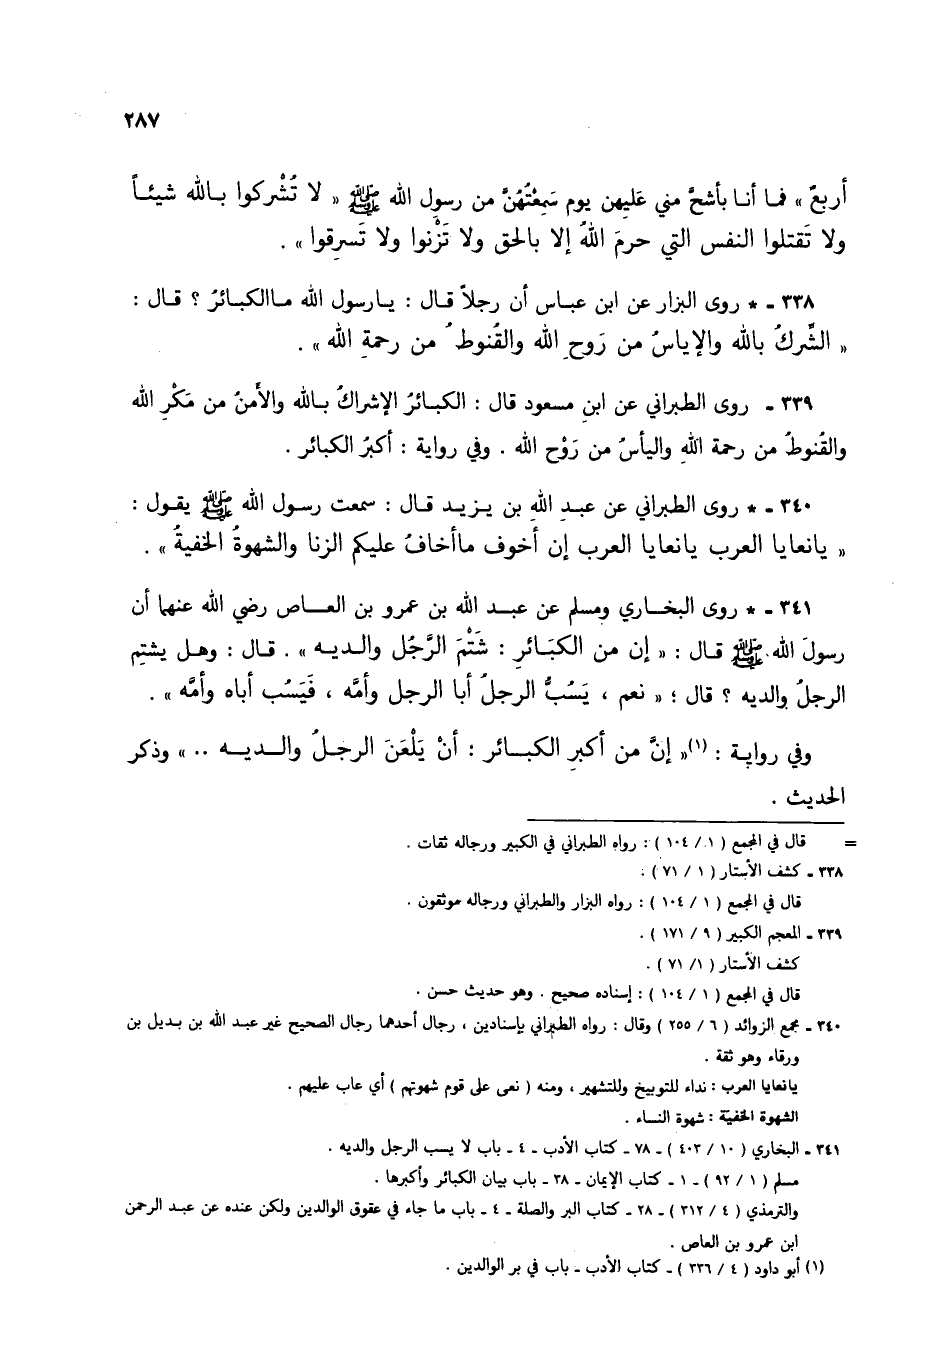 ٢٨٧
أربعٌ » فما أنا بأشحَّ مني عَليهن يوم سَمِعْتُهُنَّ من رسول الله ﷺ « لا تُشْركوا بالله شيئاً
ولا تَقتلوا النفس التي حرمَ اللهُ إلا بالحق ولا تَزْنوا ولا تَسرِقوا » .
٣٣٨ - * روى البزار عن ابن عباس أن رجلاً قال : يارسول الله ماالكبائرُ ؟ قال :
« الشِّركُ بالله والإياسُ من رَوح الله والقُنوطُ من رحمةِ الله » .
٣٣٩ - روى الطبراني عن ابنِ مسعود قال : الكبائرُ الإشراكُ بالله والأَمنُ من مَكْرِ الله
والقُنوطُ من رحمة اللهِ واليأسُ من رَوْح الله . وفي رواية : أكبرُ الكبائر .
٣٤٠ - * روى الطبراني عن عبدِ اللهِ بن يزيد قال : سمعت رسول الله ﷺ يقول :
« يانعايا العرب يانعايا العرب إن أخوف ماأخافُ عليكم الزنا والشهوةُ الخفيةُ » .
٣٤١ - * روى البخاري ومسلم عن عبد الله بن عمرو بن العاص رضي الله عنهما أن
رسولَ الله ﷺ قال : « إن من الكبَائرِ : شَتْمَ الرَّجُل والديه » . قال : وهل يشتم
الرجلُ والديه ؟ قال ؛ « نعم ، يَسُبُّ الرجلُ أبا الرجل وأمَّه ، فَيَسُب أباه وأمَّه » .
وفي رواية : (١)« إنَّ من أكبرِ الكبائر : أنْ يَلْعَنَ الرجلُ والديه .. » وذكر
الحديث .
= قال في المجمع ( ١ / ١٠٤ ) : رواه الطبراني في الكبير ورجاله ثقات .
٣٣٨ - كشف الأستار ( ١ / ٧١ ) .
قال في المجمع ( ١ / ١٠٤ ) : رواه البزار والطبراني ورجاله موثقون .
٣٣٩ - المعجم الكبير ( ٩ / ١٧١ ) .
كشف الأستار ( ١/ ٧١ ) .
قال في المجمع ( ١ / ١٠٤ ) : إسناده صحيح . وهو حديث حسن .
٣٤٠ - مجمع الزوائد ( ٦ / ٢٥٥ ) وقال : رواه الطبراني بإسنادين ، رجال أحدهما رجال الصحيح غير عبد الله بن بديل بن
ورقاء وهو ثقة .
يانعايا العرب : نداء للتوبيخ وللتشهير ، ومنه ( نعى على قوم شهوتهم ) أي عاب عليهم .
الشهوة الخفية : شهوة النساء .
٣٤١ - البخاري ( ١٠ / ٤٠٣ ) - ٧٨ - كتاب الأدب - ٤ - باب لا يسب الرجل والديه .
مسلم ( ١ / ٩٢ ) - ١ - كتاب الإيمان - ٣٨ - باب بيان الكبائر وأكبرها .
والترمذي ( ٤ / ٣١٢ ) - ٢٨ - كتاب البر والصلة - ٤ - باب ما جاء في عقوق الوالدين ولكن عنده عن عبد الرحمن
ابن عمرو بن العاص .
(١) أبو داود ( ٤ / ٣٣٦ ) - كتاب الأدب - باب في بر الوالدين .